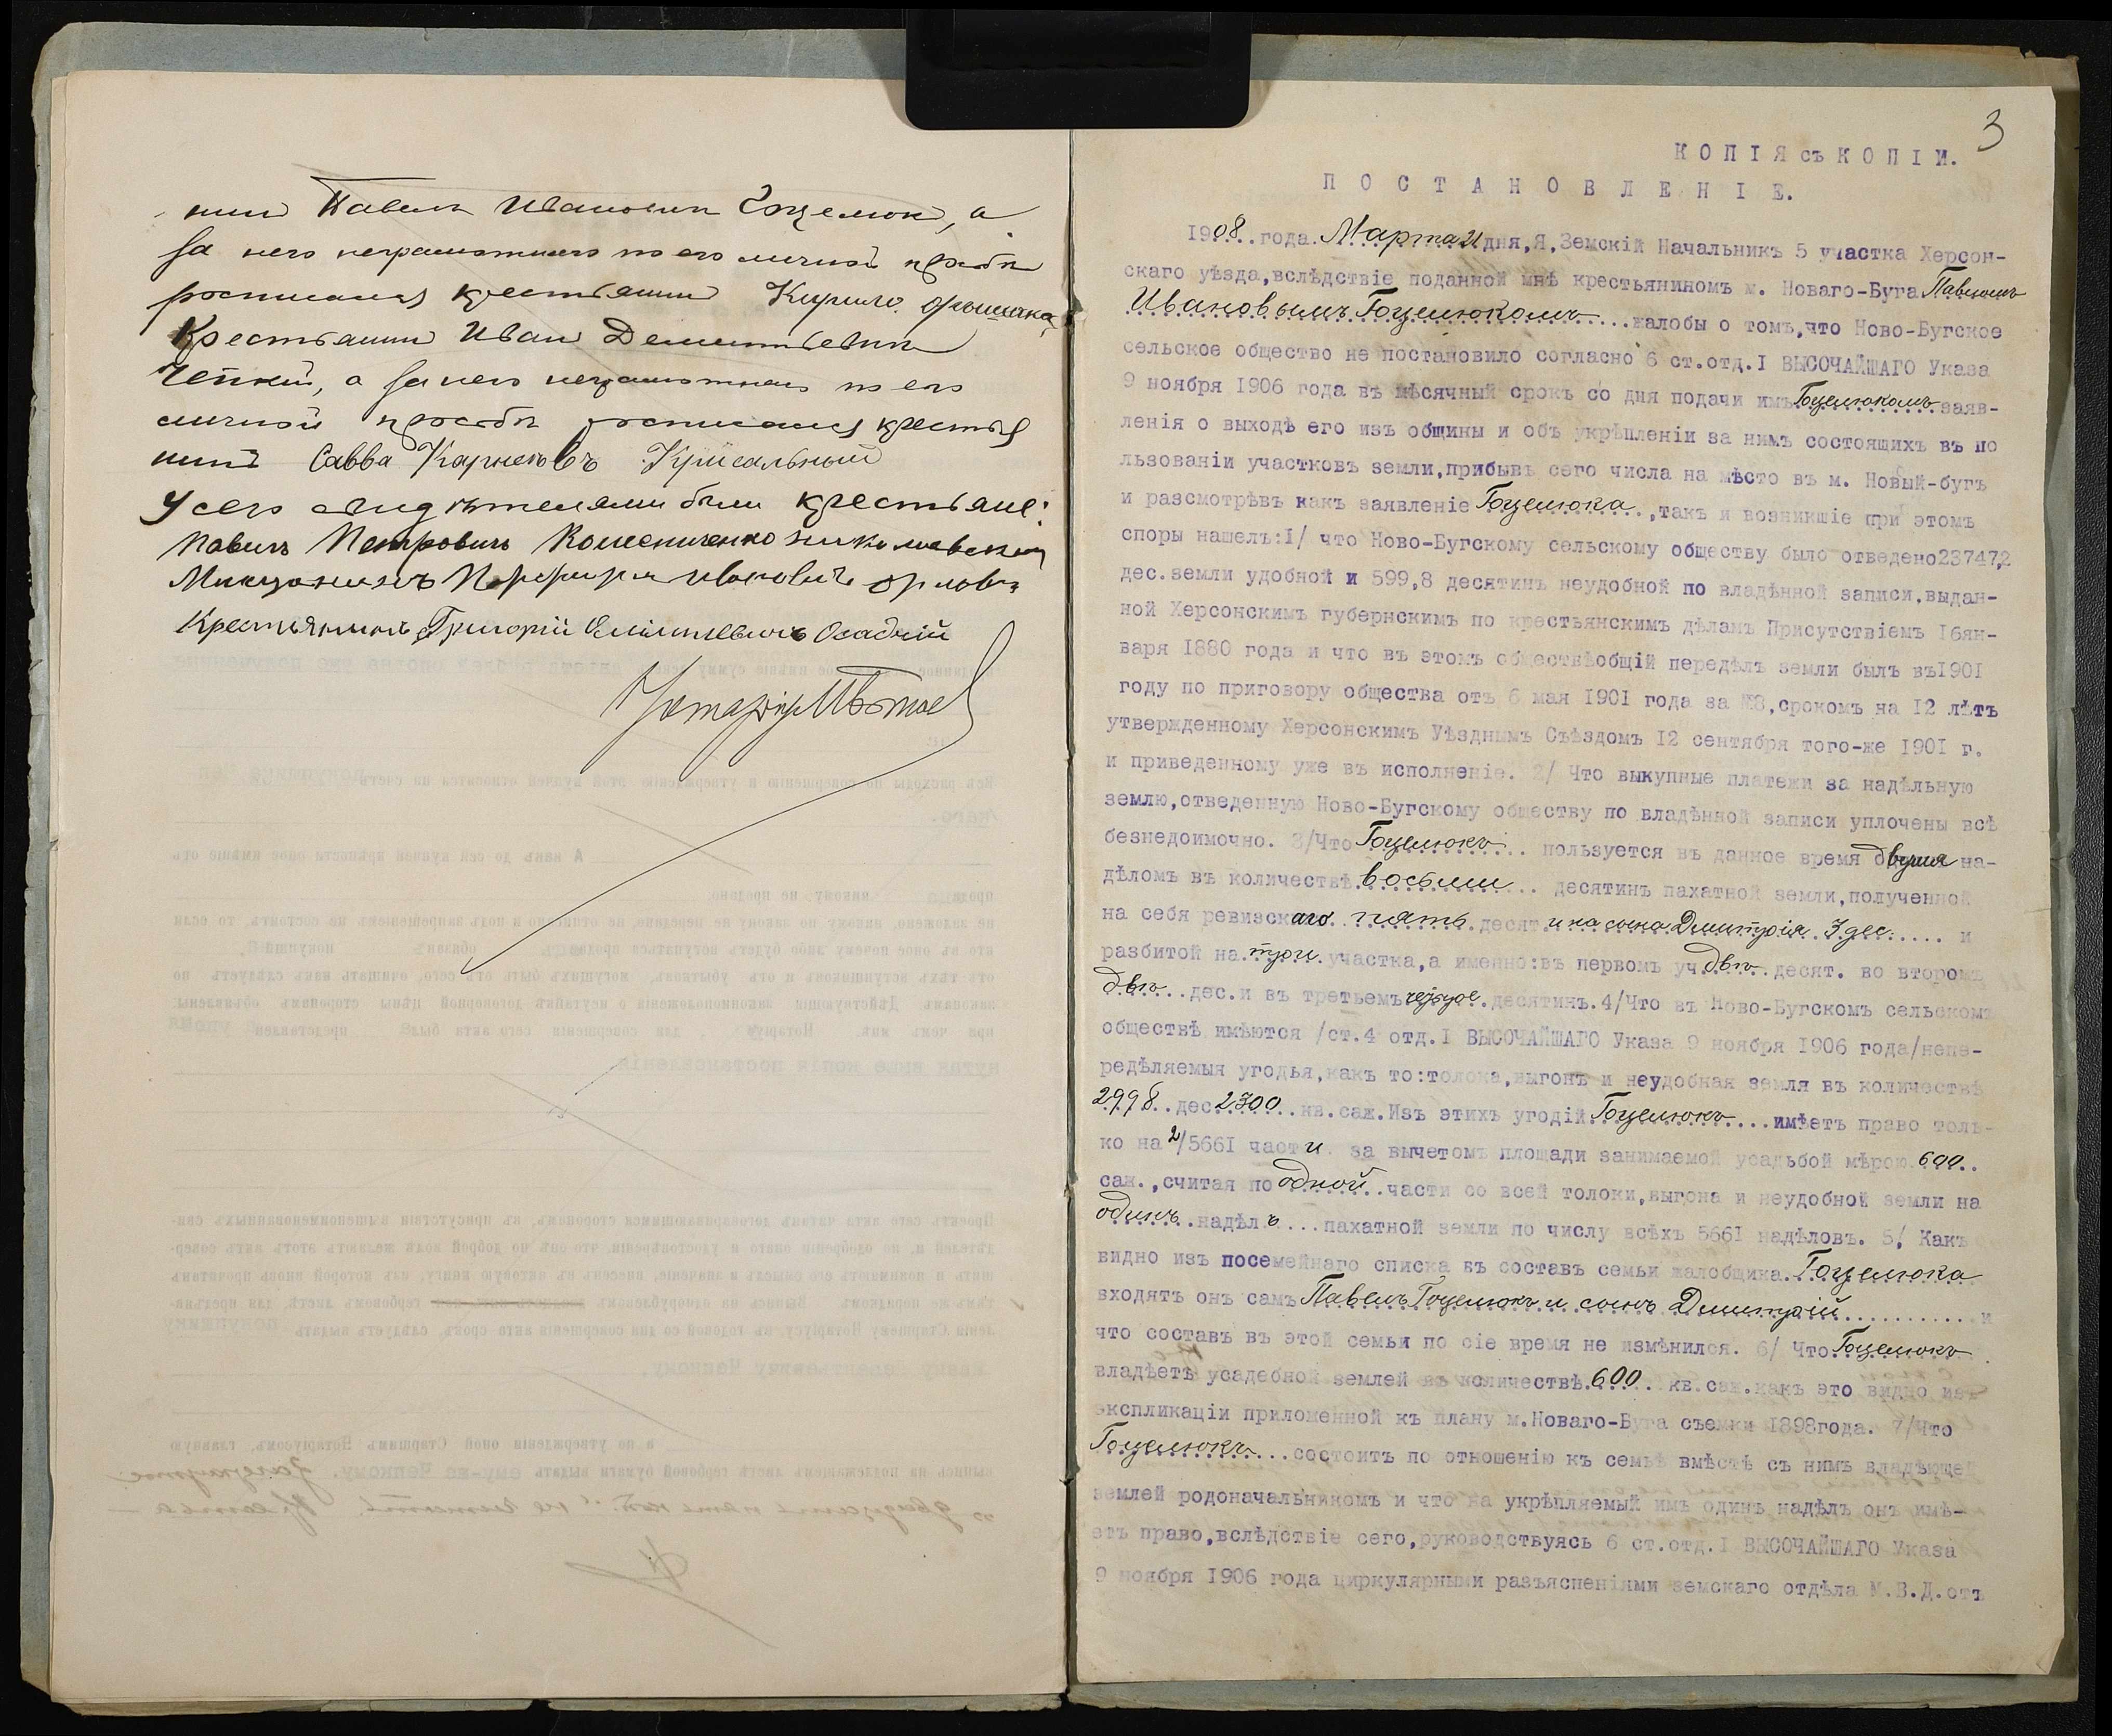 нинъ Павелъ Ивановичъ Гоцелюкъ, а
за него неграмотнаго по его личной просьбѣ
росписался крестьянинъ Кирилло
Крестьянинъ Иванъ Дементьевичъ
Чепкій, а за него неграмотнаго по его
личной просьбѣ росписался крестья
нинъ Савва Карнеговъ
У сего свидѣтелями были крестьяне:
Павелъ Петровичъ Николаевскій
Мищанинъ Порфирій Ивановичъ Орловъ
Крестьянинъ Григорій Осадчій
Нотаріусъ
3
КОПІЯ съ КОПІИ.
ПОСТАНОВЛЕНІЕ.
1908 года Марта 21 дня, Я, Земскій Начальникъ 5 участка Херсон-
скаго уѣзда,вслѣдствіе поданной мнѣ крестьяниномъ м. Новаго-Буга Павломъ
Ивановымъ Гоцелюкомъ жалобы о томъ,что Ново-Бугское
сельское общество не постановило согласно 6 ст.отд.I ВЫСОЧАЙШАГО Указа
9 ноября 1906 года въ мѣсячный срокъ со дня подачи имъ Гоцелюкомъ заяв-
ленія о выходѣ его изъ общины и объ укрѣпленіи за нимъ состоящихъ въ по
льзованіи участковъ земли,прибывъ сего числа на мѣсто въ м. Новый-бугъ
и разсмотрѣвъ какъ заявленіе Гоцелюка ,такъ и возникшіе при этомъ
споры нашелъ:1/ что Ново-Бугскому сельскому обществу было отведено23747,2
дес.земли удобной и 599,8 десятинъ неудобной по владѣнной записи,выдан-
ной Херсонскимъ губернскимъ по крестьянскимъ дѣламъ Присутствіемъ 16ян-
варя 1880 года и что въ этомъ обществѣобщій передѣлъ земли былъ въ1901
году по приговору общества отъ 6 мая 1901 года за №8,срокомъ на 12 лѣтъ
утвержденному Херсонскимъ Уѣзднымъ Съѣздомъ 12 сентября того-же 1901 г.
и приведенному уже въ исполненіе. 2/ Что выкупные платежи за надѣльную
землю,отведенную Ново-Бугскому обществу по владѣнной записи уплочены всѣ
безнедоимочно. 3/Что Гоцелюкъ пользуется въ данное время двумя на-
дѣломъ въ количествѣ восьми десятинъ пахатной земли,полученной
на себя ревизскаго пять десят и на сына Димитрія 3 дес. и
разбитой на три участка,а именно:въ первомъ уч. двѣ десят. во второмъ
двѣ дес.и въ третьемъ четыре десятинъ.4/Что въ Ново-Бугскомъ сельскомъ
обществѣ имѣются /ст.4 отд.I ВЫСОЧАЙШАГО Указа 9 ноября 1906 года/непе-
редѣляемыя угодья,какъ то:толока,выгонъ и неудобная земля въ количествѣ
2998 дес 2300 кв.саж.Изъ этихъ угодій Гоцелюкъ имѣетъ право толь-
ко на 2/5661 части за вычетомъ площади занимаемой усадьбой мѣрою 600
саж.,считая по одной части со всей толоки,выгона и неудобной земли на
одинъ надѣлъ пахатной земли по числу всѣхъ 5661 надѣловъ. 5/ Какъ
видно изъ посемейнаго списка въ составъ семьи жалобщика Гоцелюка
входятъ онъ самъ Павелъ Гоцелюкъ и сынъ Димитрій и
что составъ въ этой семьи по сіе время не измѣнился. 6/ Что Гоцелюкъ
владѣетъ усадебной землей въ количествѣ 600 кв.саж.какъ это видно изъ
экспликаціи приложенной къ плану м.Новаго-Буга съемки 1898года. 7/Что
Гоцелюкъ состоитъ по отношенію къ семьѣ вмѣстѣ съ нимъ владѣющей
землей родоначальникомъ и что на укрѣпляемый имъ одинъ надѣлъ онъ имѣ-
етъ право,вслѣдствіе сего,руководствуясь 6 ст.отд.I ВЫСОЧАЙШАГО Указа
9 ноября 1906 года циркулярными разъясненіями земскаго отдѣла М.В.Д.отъ